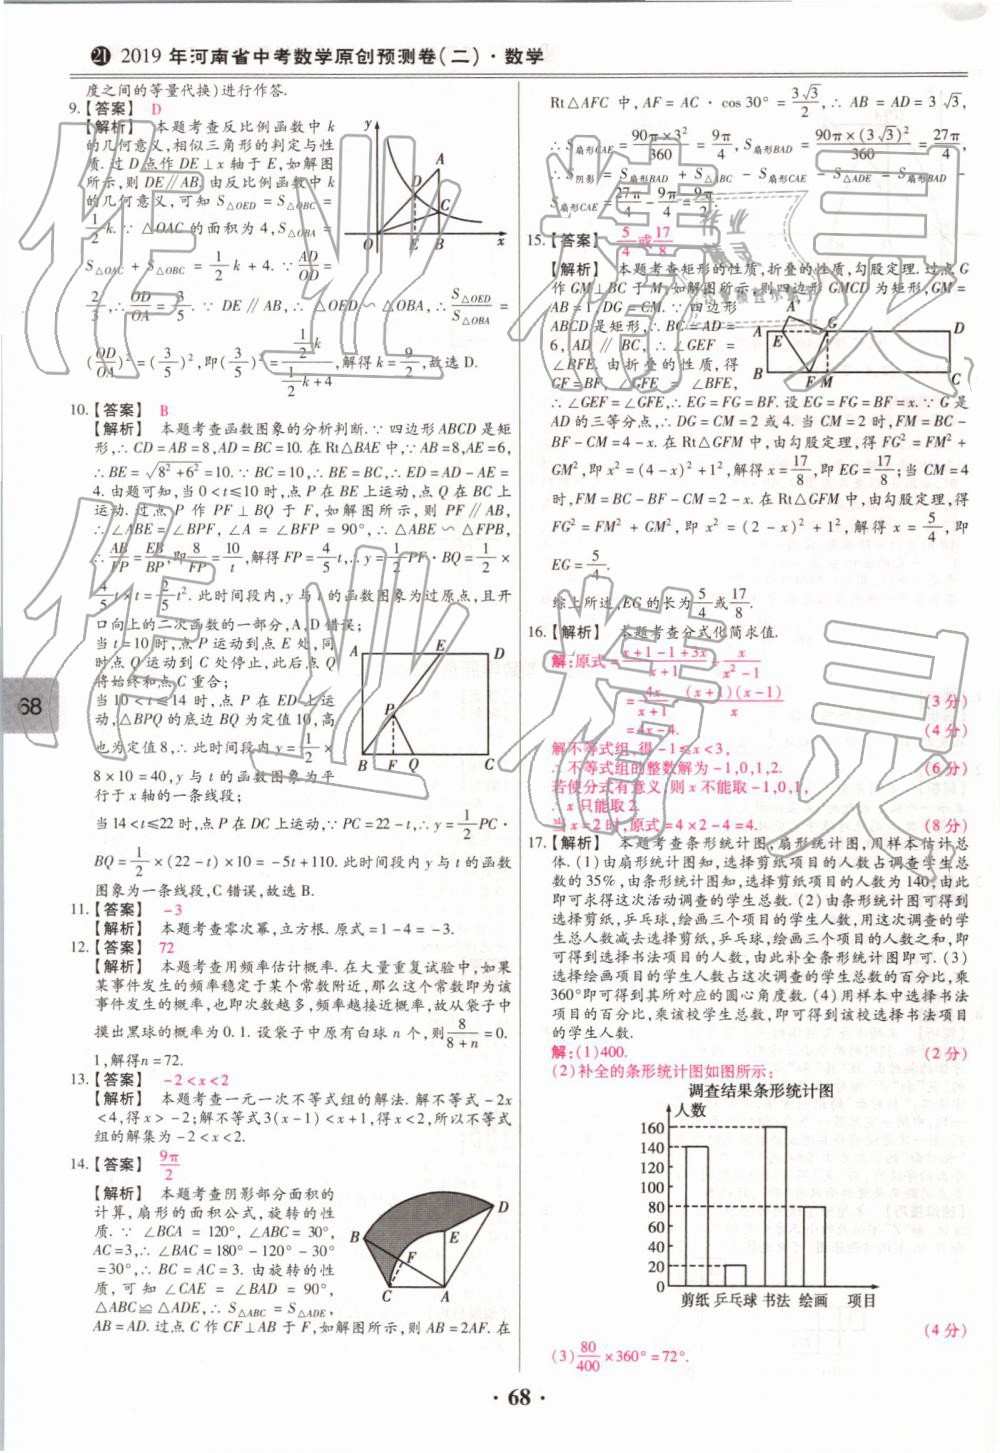 ㉑ 2019年河南省中考数学原创预测卷(二)·数学
度之间的等量代换)进行作答.
9.【答案】 D
【解析】 本题考查反比例函数中k
的几何意义,相似三角形的判定与性
质.过D点作DE⊥x轴于E,如解图
所示,则DE∥AB.由反比例函数中k
的几何意义,可知S△OED=S△OBC=
1/2 k.∵△OAC的面积为4,S△OBA=
S△OAC+S△OBC=1/2 k+4.∵AD/OD=
2/3,∴OD/OA=3/5.∵DE∥AB,∴△OED∽△OBA,∴S△OED/S△OBA=
(OD/OA)²=(3/5)²,即(3/5)²=(1/2 k)/(1/2 k+4),解得k=9/2,故选D.
y
A
D
C
O
E
B
x
10.【答案】 B
【解析】 本题考查函数图象的分析判断.∵四边形ABCD是矩
形,∴CD=AB=8,AD=BC=10.在Rt△BAE中,∵AB=8,AE=6,
∴BE=√(8²+6²)=10.∵BC=10,∴BE=BC,∴ED=AD-AE=
4.由题可知,当0<t≤10时,点P在BE上运动,点Q在BC上
运动.过点P作PF⊥BQ于F,如解图所示,则PF∥AB,
∴∠ABE=∠BPF,∠A=∠BFP=90°,∴△ABE∽△FPB,
∴AB/FP=EB/BP,即8/FP=10/t,解得FP=4/5 t,∴y=1/2 PF·BQ=1/2×
4/5 t×t=2/5 t².此时间段内,y与t的函数图象为过原点,且开
口向上的二次函数的一部分,A、D错误;
当t=10时,点P运动到点E处,同
时点Q运动到C处停止,此后点Q
将始终和点C重合;
当10<t≤14时,点P在ED上运
动,△BPQ的底边BQ为定值10,高
也为定值8,∴此时间段内y=1/2×
8×10=40,y与t的函数图象为平
行于x轴的一条线段;
A
E
D
P
B
F
Q
C
当14<t≤22时,点P在DC上运动,∵PC=22-t,∴y=1/2 PC·
BQ=1/2×(22-t)×10=-5t+110.此时间段内y与t的函数
图象为一条线段,C错误,故选B.
11.【答案】 -3
【解析】 本题考查零次幂,立方根.原式=1-4=-3.
12.【答案】 72
【解析】 本题考查用频率估计概率.在大量重复试验中,如果
某事件发生的频率稳定于某个常数附近,那么这个常数即为该
事件发生的概率,也即次数越多,频率越接近概率,故从袋子中
摸出黑球的概率为0.1.设袋子中原有白球n个,则8/(8+n)=0.
1,解得n=72.
13.【答案】 -2<x<2
【解析】 本题考查一元一次不等式组的解法.解不等式-2x
<4,得x>-2;解不等式3(x-1)<x+1,得x<2,所以不等式
组的解集为-2<x<2.
14.【答案】 9π/2
【解析】 本题考查阴影部分面积的
计算,扇形的面积公式,旋转的性
质.∵∠BCA=120°,∠ABC=30°,
AC=3,∴∠BAC=180°-120°-30°
=30°,∴BC=AC=3.由旋转的性
质,可知∠CAE=∠BAD=90°,
△ABC≌△ADE,∴S△ABC=S△ADE,
AB=AD.过点C作CF⊥AB于F,如解图所示,则AB=2AF.在
D
B
E
F
C
A
Rt△AFC中,AF=AC·cos30°=3√3/2,∴AB=AD=3√3,
∴S扇形CAE=90π×3²/360=9π/4,S扇形BAD=90π×(3√3)²/360=27π/4,
∴S阴影=S扇形BAD+S△ABC-S扇形CAE-S△ADE=S扇形BAD-
S扇形CAE=27π/4-9π/4=9π/2.
15.【答案】 5/4或17/8
【解析】 本题考查矩形的性质,折叠的性质,勾股定理.过点G
作GM⊥BC于M,如解图所示,则四边形GMCD为矩形,GM=
AB=1,DG=CM.∵四边形
ABCD是矩形,∴BC=AD=
6,AD∥BC,∴∠GEF=
∠BFE.由折叠的性质,得
GF=BF,∠GFE=∠BFE,
A
A
E
G
D
B
F
M
C
∴∠GEF=∠GFE,∴EG=FG=BF.设EG=FG=BF=x.∵G是
AD的三等分点,∴DG=CM=2或4.当CM=2时,FM=BC-
BF-CM=4-x.在Rt△GFM中,由勾股定理,得FG²=FM²+
GM²,即x²=(4-x)²+1²,解得x=17/8,即EG=17/8;当CM=4
时,FM=BC-BF-CM=2-x.在Rt△GFM中,由勾股定理,得
FG²=FM²+GM²,即x²=(2-x)²+1²,解得x=5/4,即
EG=5/4.
综上所述,EG的长为5/4或17/8.
16.【解析】 本题考查分式化简求值.
解:原式=(x+1-1+3x)/(x+1)÷x/(x²-1)
=4x/(x+1)·(x+1)(x-1)/x (3分)
=4x-4. (4分)
解不等式组,得-1≤x<3,
∴不等式组的整数解为-1,0,1,2. (6分)
若使分式有意义,则x不能取-1,0,1,
∴x只能取2.
当x=2时,原式=4×2-4=4. (8分)
17.【解析】 本题考查条形统计图,扇形统计图,用样本估计总
体.(1)由扇形统计图知,选择剪纸项目的人数占调查学生总
数的35%,由条形统计图知,选择剪纸项目的人数为140,由此
即可求得这次活动调查的学生总数.(2)由条形统计图可得到
选择剪纸,乒乓球,绘画三个项目的学生人数,用这次调查的学
生总人数减去选择剪纸,乒乓球,绘画三个项目的人数之和,即
可得到选择书法项目的人数,由此补全条形统计图即可.(3)
选择绘画项目的学生人数占这次调查的学生总数的百分比,乘
360°即可得到其所对应的圆心角度数.(4)用样本中选择书法
项目的百分比,乘该校学生总数,即可得到该校选择书法项目
的学生人数.
解:(1)400. (2分)
(2)补全的条形统计图如图所示:
调查结果条形统计图
人数
160
140
120
100
80
60
40
20
0
剪纸 乒乓球 书法 绘画 项目
(4分)
(3)80/400×360°=72°.
68
·68·
作业精灵